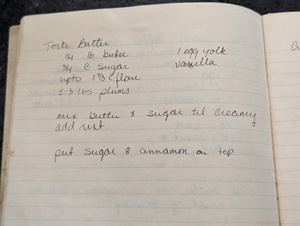 Torte Batter
1/4 lb butter 1 egg yolk
3/4 C Sugar vanilla
upto 1 2/3 C flour
2-3 lbs plums
mix butter & sugar til creamy
add rest
put sugar & cinnamon on top